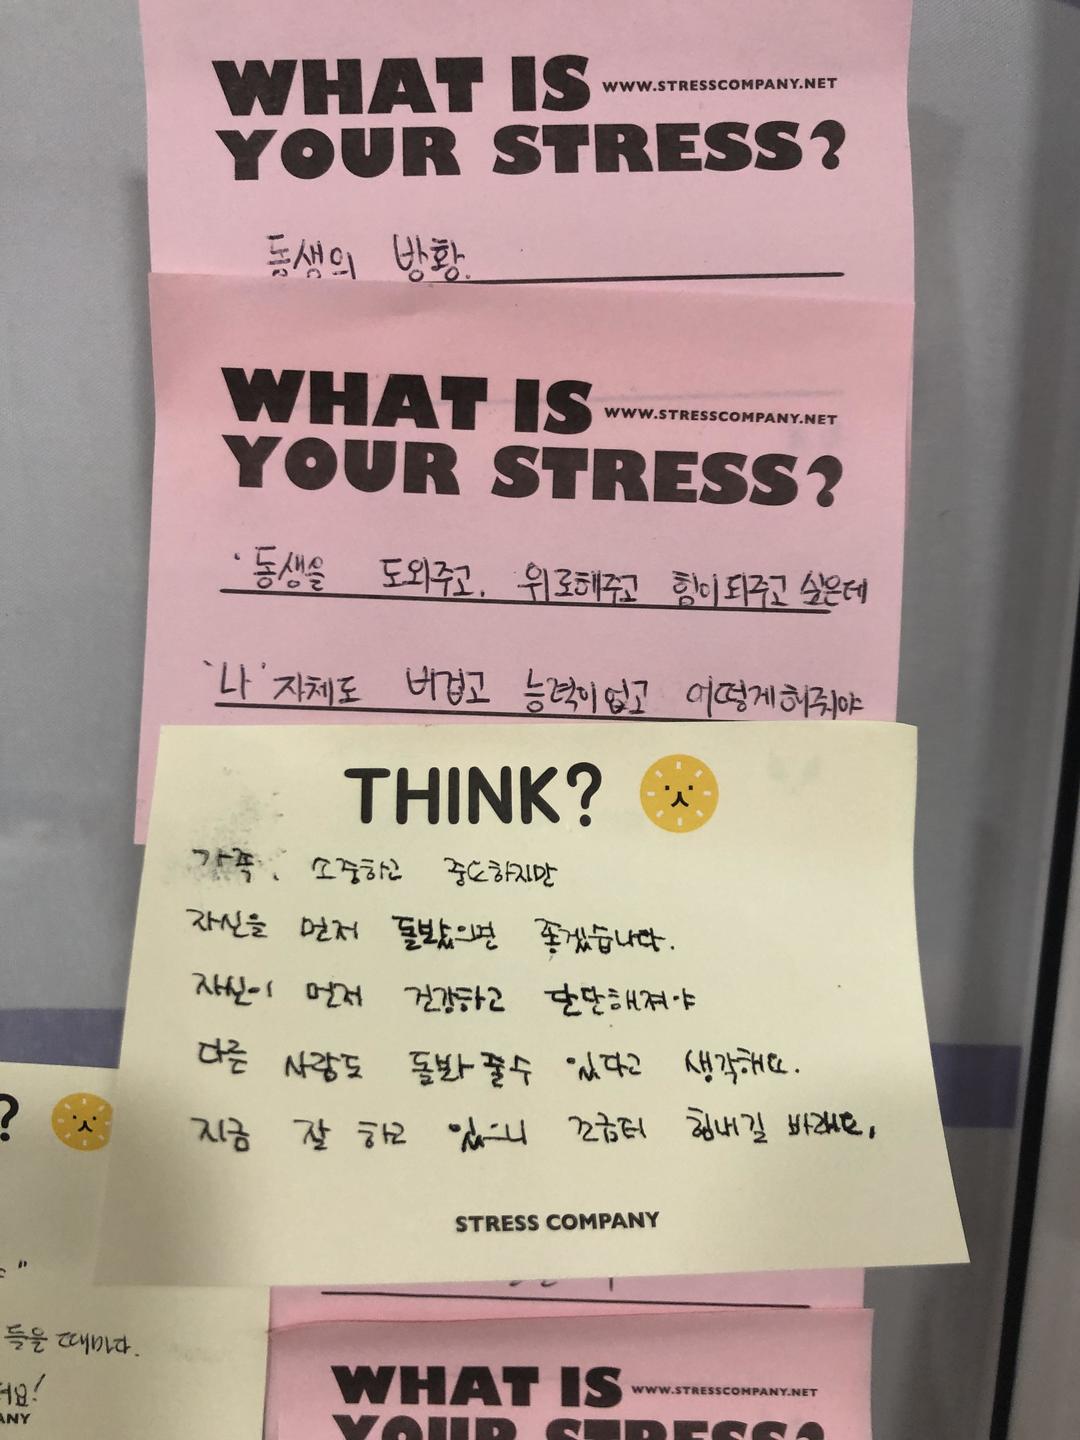 WHAT IS WWW.STRESSCOMPANY.NET
YOUR STRESS?
동생의 방황.
WHAT IS WWW.STRESSCOMPANY.NET
YOUR STRESS?
동생을 도와주고, 위로해주고 힘이되주고 싶은데
'나' 자체도 버겁고 능력이없고 어떻게해줘야
THINK?
가족, 소중하고 중요하지만
자신을 먼저 돌봤으면 좋겠습니다.
자신이 먼저 건강하고 단단해져야
다른 사람도 돌봐 줄수 있다고 생각해요.
지금 잘 하고 있으니 조금더 힘내길 바래요.
STRESS COMPANY
?
"
들을 때마다.
요!
ANY
WHAT IS WWW.STRESSCOMPANY.NET
YOUR STRESS?